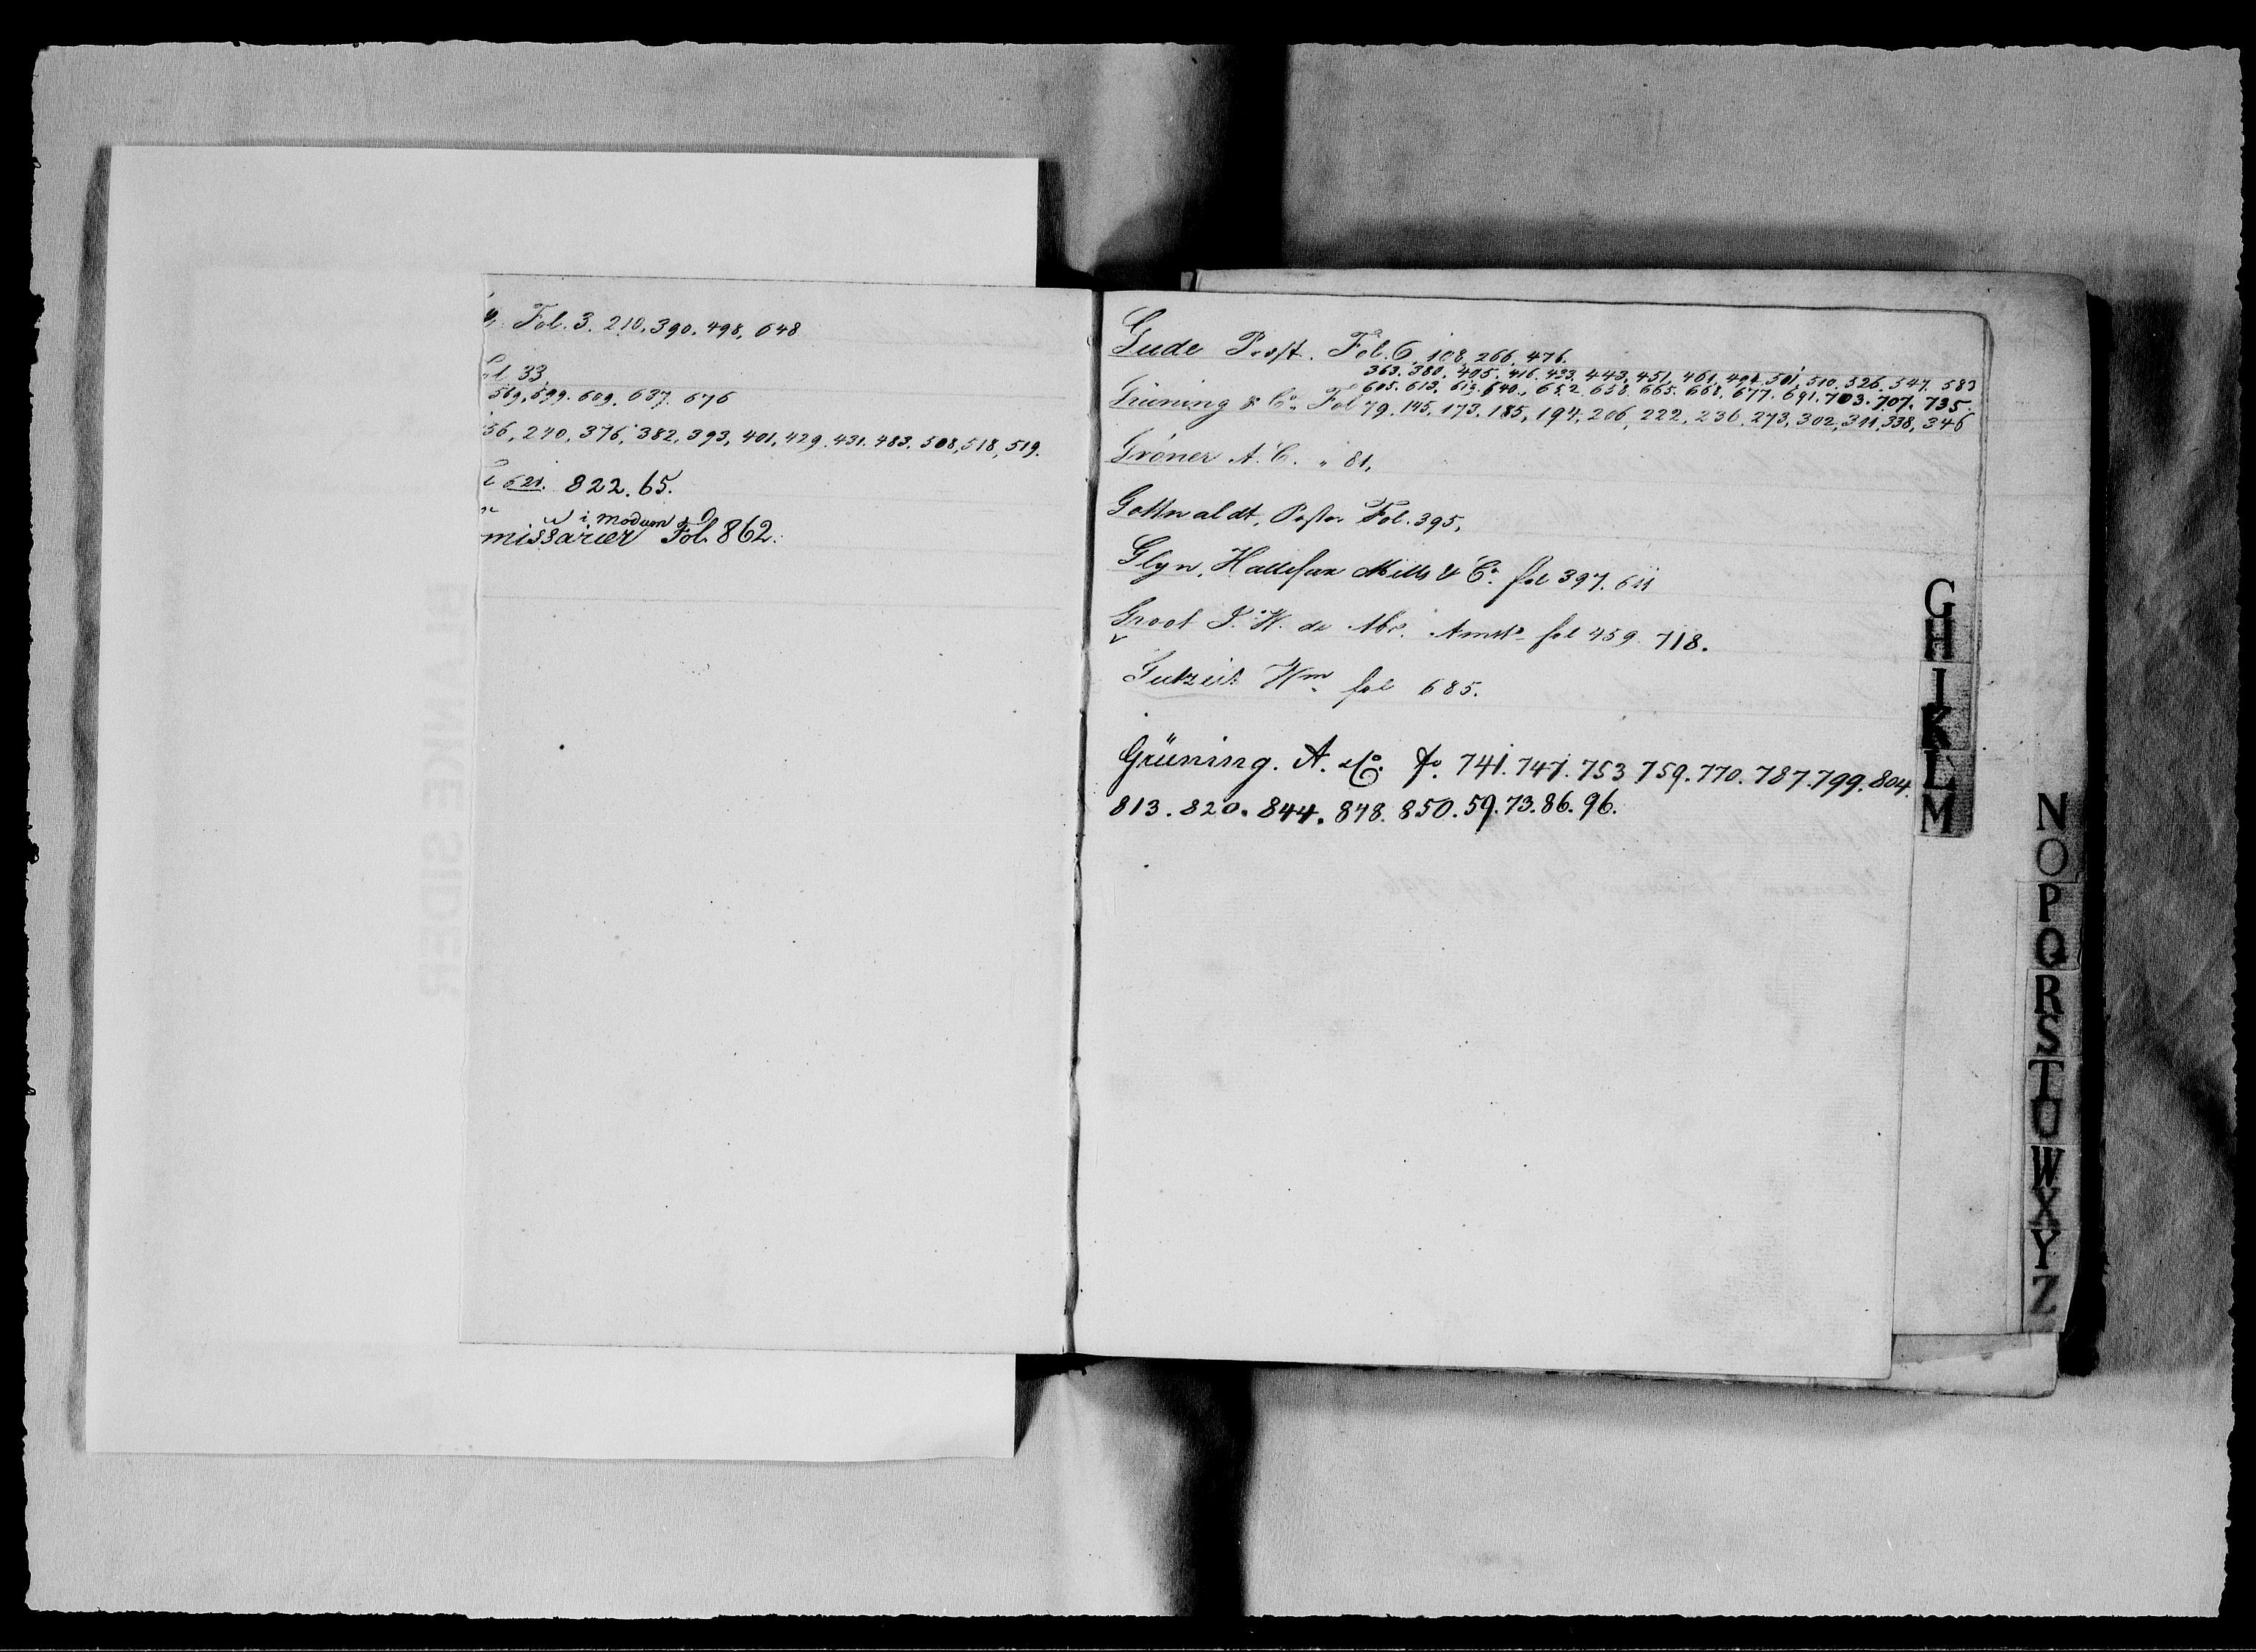 Fol. 3. 210, 390. 498, 648
33.
569, 599. 609. 637. 676
56, 240, 376, 382, 393, 401, 429. 431. 483. 508, 518, 519.
621. 822. 65.
i Moduem
missarier Fol. 862.
Gude Provst. Fol. 6, 108, 266, 476.
363. 380. 405. 416. 433. 443, 451. 461. 494. 501, 510. 526. 547. 583
605. 613. 640. 652. 658. 665. 668. 677. 691. 703. 707. 735.
Grüning & Co. Fol 79. 145, 173, 185, 194, 206, 222, 236, 273, 302, 311, 338, 346
Grøner A. C. " 81,
Gottwaldt, Pastor Fol. 395,
Glyn, Hallifax Mills & Co. fol 397. 611
Groot J. W. de Abr. Amstr. fol 459. 718.
Gutzeit Wm fol 685.
Grüning. A. & Co. fo. 741. 747. 753 759. 770. 787. 799. 804.
813. 820. 844. 848. 850. 59. 73. 86. 96.
G
H
I
K
L
M
N
O
P
Q
R
S
T
U
W
X
Y
Z